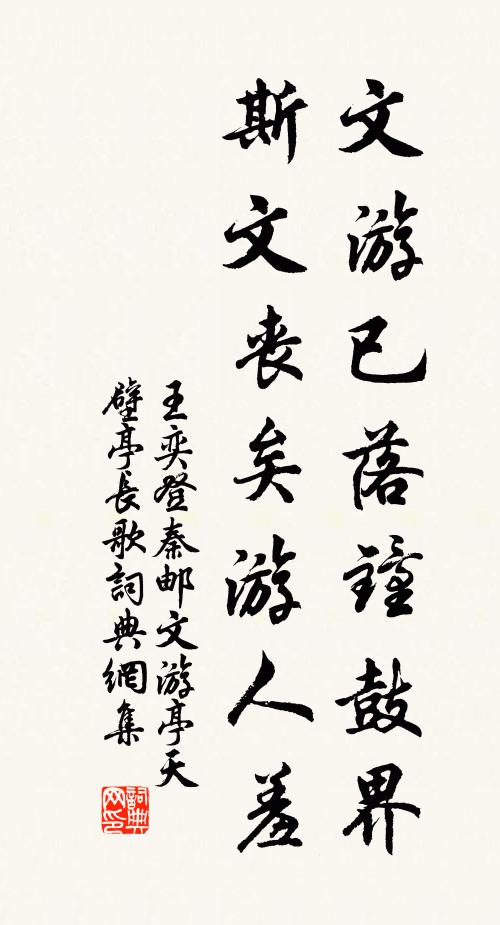 文游已落鐘鼓界
斯文丧矣游人羞
王奕登秦邮文游亭天
壁亭長歌詞典網集
詞典网印